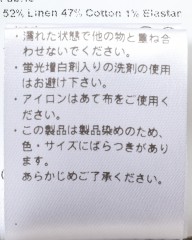 52% Linen 47% Cotton 1% Elastan
・濡れた状態で他の物と重ね合
わせないでください。
・蛍光増白剤入りの洗剤の使用
はお避け下さい。
・アイロンはあて布をご使用く
ださい。
・この製品は製品染めのため、
色・サイズにばらつきがあり
ます。
あらかじめご了承ください。